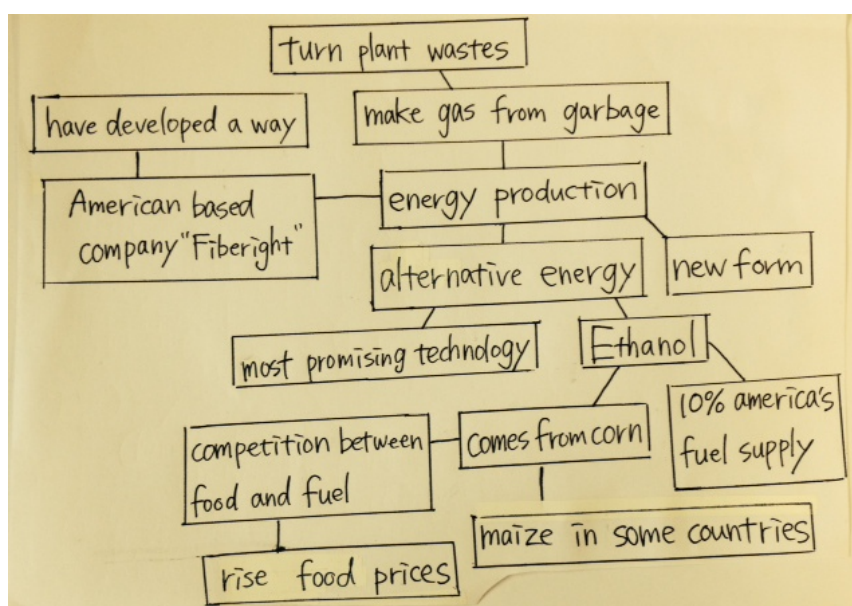 turn plant wastes
have developed a way
make gas from garbage
American based
company "Fiberight"
energy production
alternative energy
new form
most promising technology
Ethanol
10% america's
fuel supply
competition between
food and fuel
comes from corn
maize in some countries
rise food prices